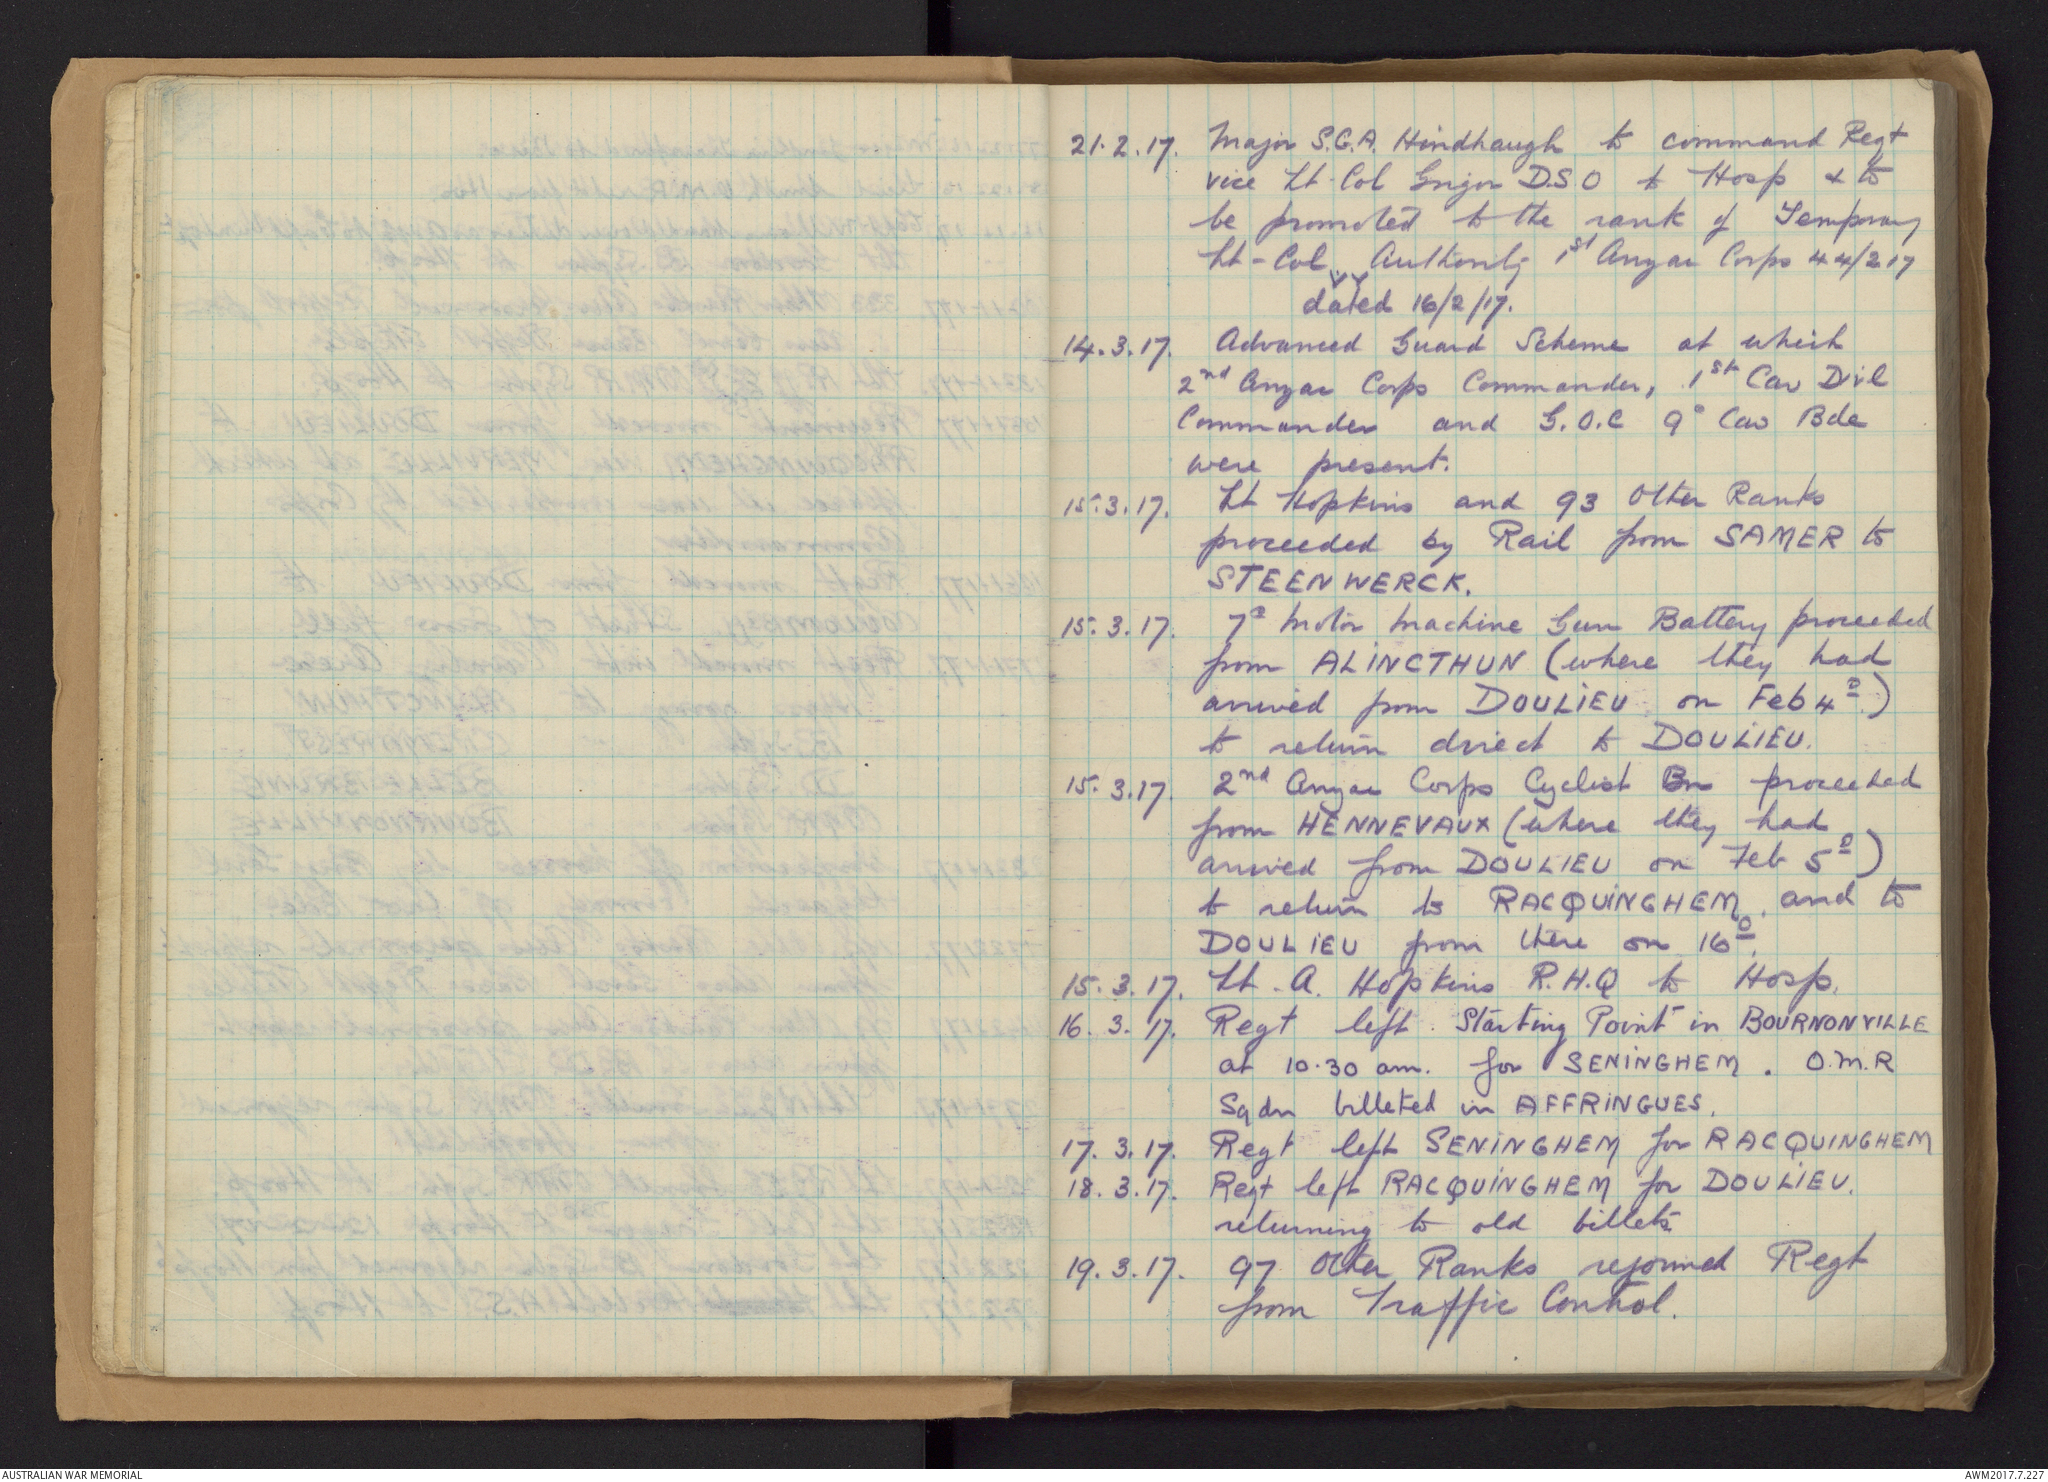 21.2.17. Major S.G.A. Hindhaugh to command Regt
vice Lt-Col Grigor D.S.O to Hosp & to
be promoted to the rank of Temporary
Lt-Col. Authority 1st Anzac Corps 44/217
dated 16/2/17.
14.3.17. Advanced Guard Scheme at which
2nd Anzac Corps Commander, 1st Cav Divl
Commander and G.O.C 9° Cav Bde
were present.
15.3.17. Lt Hopkins and 93 Other Ranks
proceeded by Rail from SAMER to
STEENWERCK.
15.3.17. 7° Motor Machine Gun Battery proceeded
from ALINCTHUN (where they had
arrived from DOULIEU on Feb 4°)
to return direct to DOULIEU.
15.3.17. 2nd Anzac Corps Cyclist Bn proceeded
from HENNEVAUX (where they had
arrived from DOULIEU on Feb 5°)
to return to RACQUINGHEM and to
DOULIEU from there on 16°.
15.3.17. Lt. A. Hopkins R.H.Q to Hosp.
16.3.17. Regt left Starting Point in BOURNONVILLE
at 10.30 am. for SENINGHEM. O.M.R
Sqdn billeted in AFFRINGUES.
17.3.17. Regt left SENINGHEM for RACQUINGHEM
18.3.17. Regt left RACQUINGHEM for DOULIEU.
returning to old billets
19.3.17. 97 Other Ranks rejoined Regt
from Traffic Control.
AUSTRALIAN WAR MEMORIAL
AWM2017.7.227